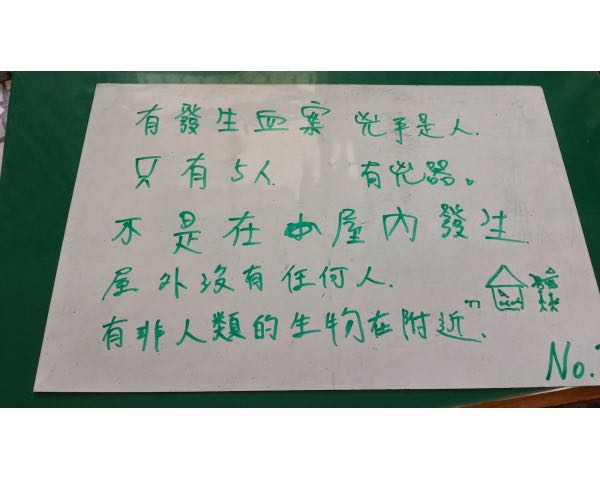 有發生血案 兇手是人.
只有5人 有兇器。
不是在小屋內發生
屋外沒有任何人.
有非人類的生物在附近.
No.